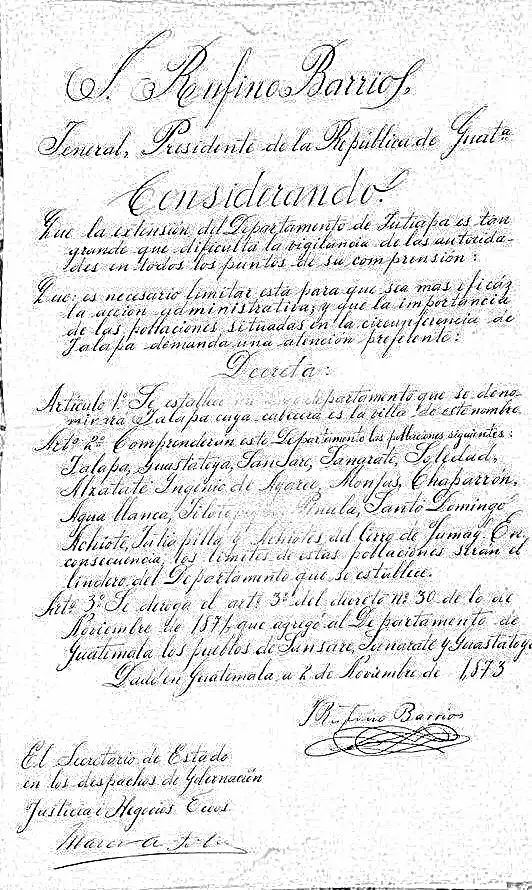 J. Rufino Barrios,
General, Presidente de la República de Guatª
Considerando:
Que la extensión del Departamento de Jutiapa es tan
grande que dificulta la vigilancia de las autorida-
des en todos los puntos de su comprensión:
Que: es necesario limitar está para que sea mas eficáz
la acción administrativa; y que la importancia
de las poblaciones situadas en la circunferencia de
Jalapa demanda una atención preferente:
Decreta:
Artículo 1º Se establece departamento que se deno-
minará Jalapa cuya cabecera es la villa de este nombre.
Artº 2º Comprenderán este Departamento las poblaciones siguientes:
Jalapa, Guastatoya, Sansare, Sanarate, Soledad,
Alzatate Ingenio de Ayarce, Monjas, Chaparrón,
Agua blanca, Pinula, Santo Domingo,
Achiote, Juliapilla y Achiotes del Cerro de Jumay. En
consecuencia, los límites de estas poblaciones serán el
lindero del Departamento que se establece.
Artº 3º Se deroga el artº 3º del decreto nº 30 de
Noviembre de 1871 que agregó al Departamento de
Guatemala los pueblos de Sansare, Sanarate y Guastatoya
Dado en Guatemala, a 2 de Noviembre de 1,873
J Rufino Barrios
El Secretario de Estado
en los despachos de Gobernación
Justicia i Negocios Ecos.
Marco A.